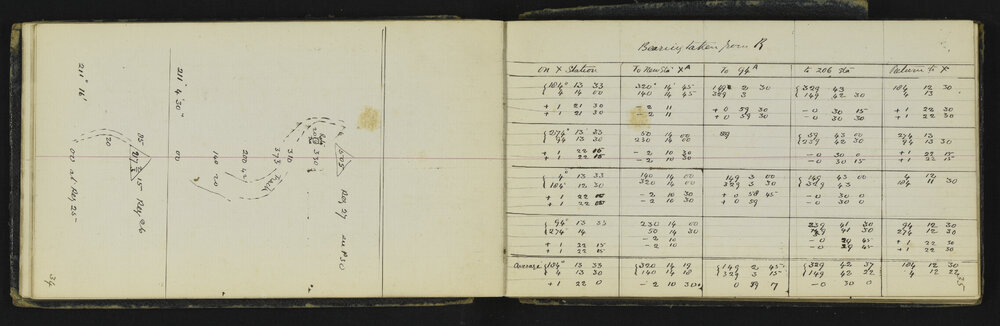 211° 16'
211° 4' 30"
00
20
00
20
140
200
310
373
Track
Peg 26
Peg 27
34
Bearing taken from R
On X Station To New Sta XA To 94A to 206 Sta Return to X
184° 13 33 320° 14' 45 149 2 30 329 43 184 12 30
4 14 00 140 14 45 329 3 149 42 30 4 13
+ 1 21 30 - 2 11 + 0 59 30 - 0 30 15 + 1 22 30
+ 1 22 30 - 2 11 + 0 59 30 - 0 30 30 + 1 22 30
274° 13 33 50 14 00 59 43 00 274 13
94 13 30 230 14 00 239 42 30 94 13 30
+ 1 22 15 - 2 10 30 - 0 30 0 + 1 22 15
+ 1 22 15 - 2 10 30 - 0 30 0 + 1 22 15
4° 13 33 140 14 00 149 3 00 149 43 00 4 12
184 12 30 320 14 00 329 3 30 329 43 184 11 30
+ 1 22 - 2 10 30 + 0 58 45 - 0 30 0
+ 1 22 - 2 10 30 + 0 59 - 0 30 0
94° 13 33 230 14 00 239 41 30 94 12 30
274 14 50 14 30 41 30 274 12 30
+ 1 22 15 - 2 10 - 0 29 45 + 1 22 30
+ 1 22 15 - 2 10 - 0 29 45 + 1 22 30
Average 184° 13 33 320 14 19 149 2 45 329 42 37 184 12 30
4 13 30 140 14 18 329 3 15 149 42 22 4 12 22
+ 1 22 0 - 2 10 30 0 59 7 - 0 30 0
35